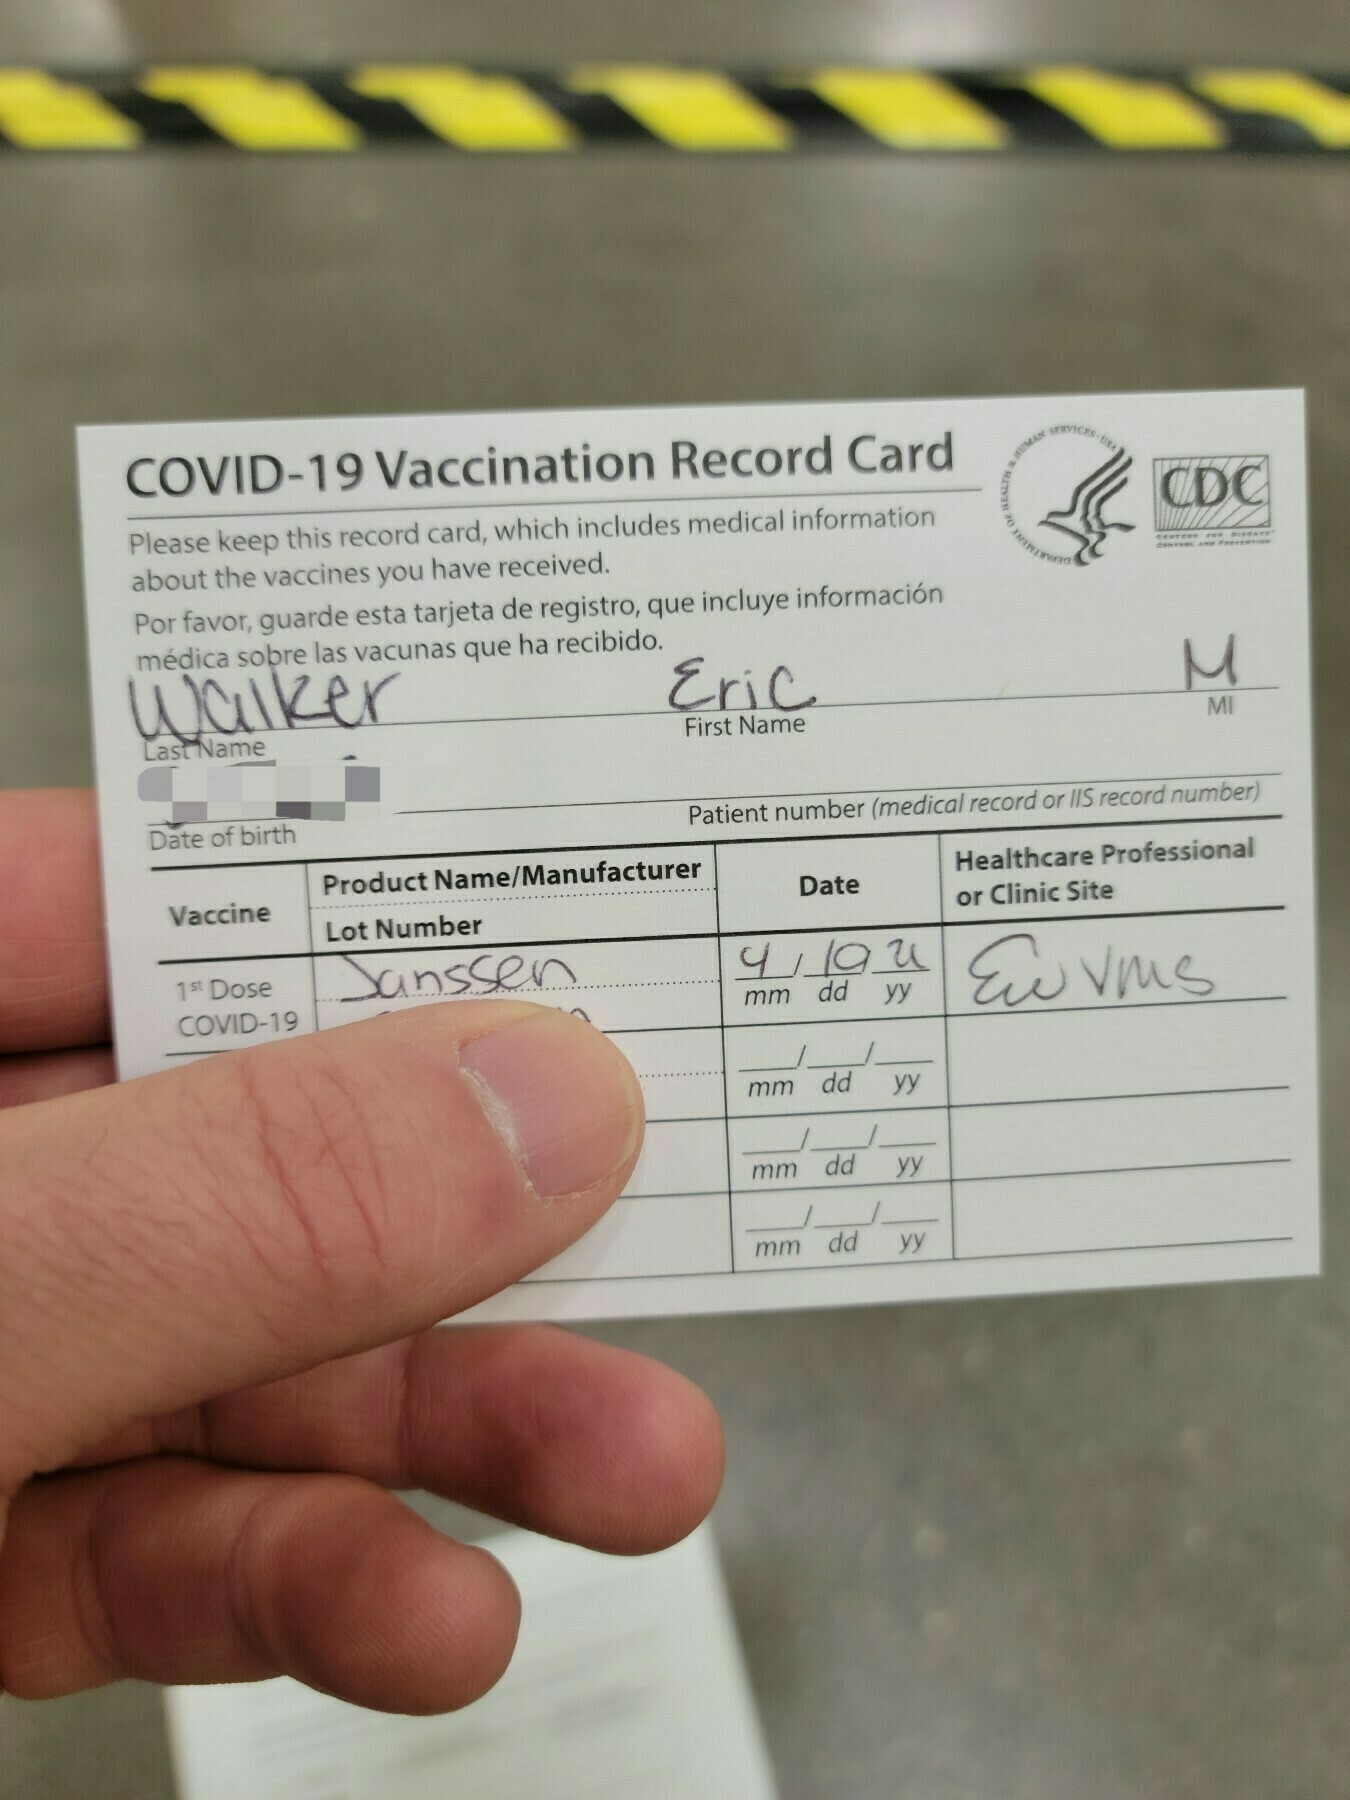 COVID-19 Vaccination Record Card
DEPARTMENT OF HEALTH & HUMAN SERVICES · USA
CDC
CENTERS FOR DISEASE
CONTROL AND PREVENTION
Please keep this record card, which includes medical information
about the vaccines you have received.
Por favor, guarde esta tarjeta de registro, que incluye información
médica sobre las vacunas que ha recibido.
Walker Eric M
Last Name First Name MI
Date of birth Patient number (medical record or IIS record number)
Vaccine Product Name/Manufacturer Date Healthcare Professional
Lot Number or Clinic Site
1st Dose Janssen 4/19 21
COVID-19 mm dd yy
mm dd yy
mm dd yy
mm dd yy